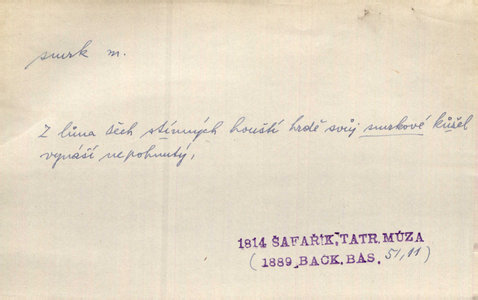 smrk m.
Z lůna těch stinných houští hrdě svůj smrkové kůžel
vynáší nepohnutý,
1814 ŠAFAŘÍK, TATR. MÚZA
( 1889 BAČK. BÁS. 51, 11 )